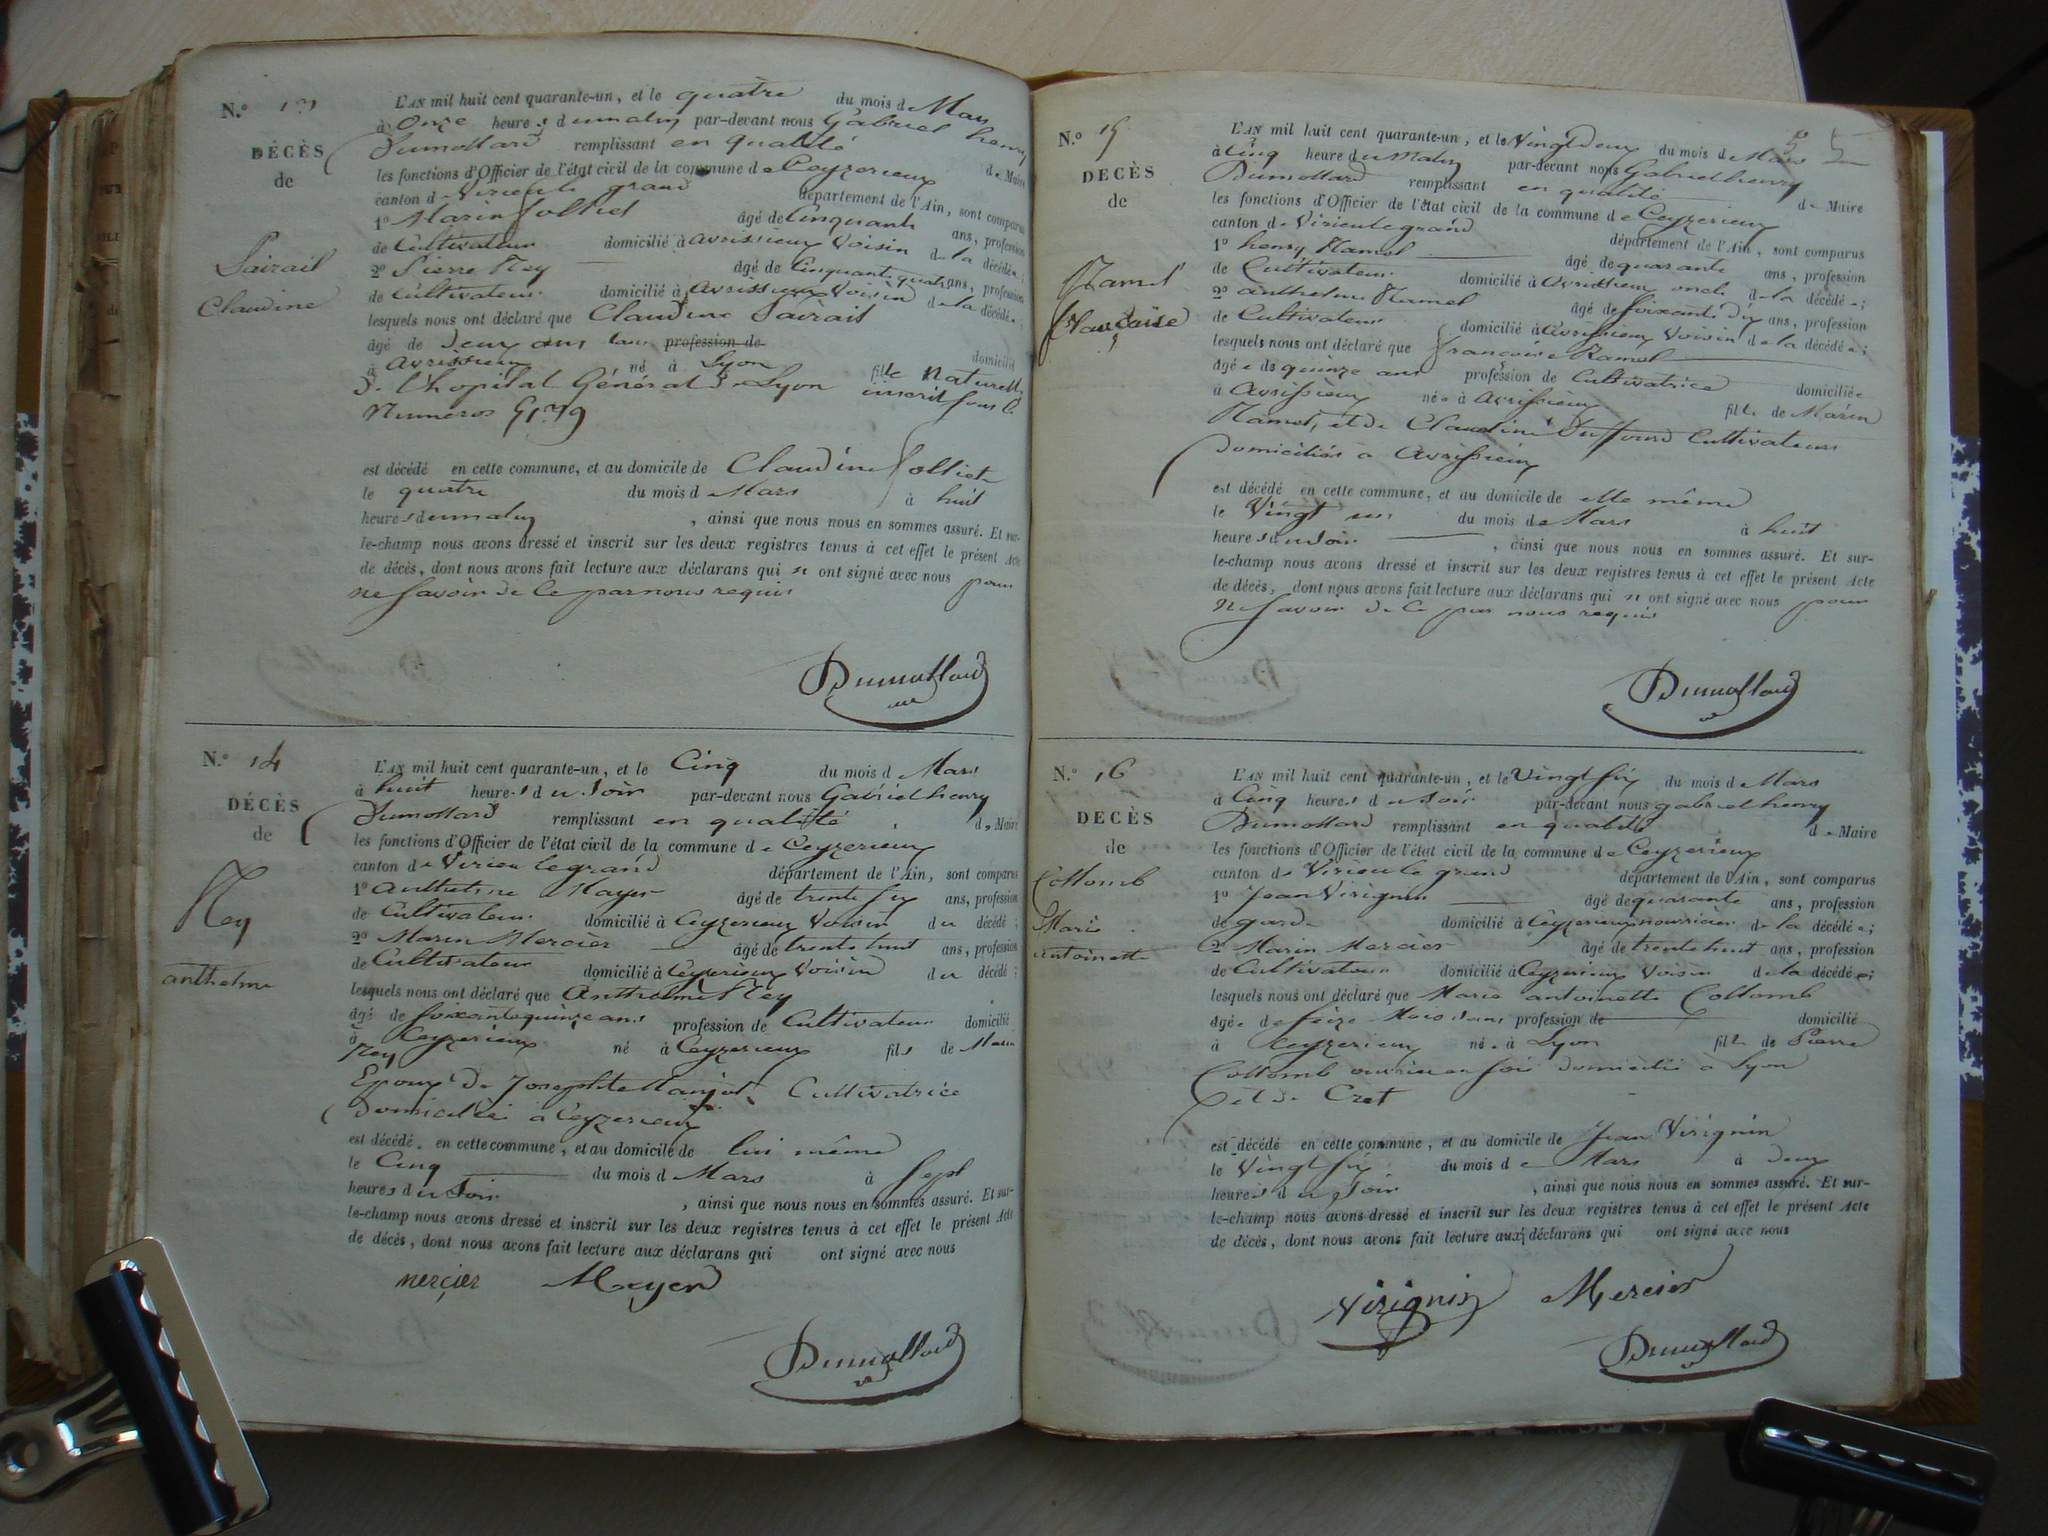 N.° 13
DÉCÈS
de
Claudine
L'AN mil huit cent quarante-un, et le quatre du mois d Mars
à Onze heures d u matin par-devant nous Gabriel henry
Dumollard remplissant en qualité de Maire
les fonctions d'Officier de l'état civil de la commune de Ceyzerieux
canton de Virieu le grand département de l'Ain, sont comparus
1° Marin Jolliet âgé de Cinquante ans, profession
de Cultivateur domicilié à avrissieux Voisin de la décédée;
2° Pierre Ney âgé de Cinquante quatre ans, profession
de Cultivateur domicilié à avrissieux Voisin de la décédée;
lesquels nous ont déclaré que Claudine
âgé de deux ans profession de domicilié
à avrissieux né à Lyon fille Naturelle
de l'hopital Général de Lyon inscrit sous le
Numeros
est décédé en cette commune, et au domicile de Claudine Jolliet
le quatre du mois d Mars à huit
heures du matin, ainsi que nous nous en sommes assuré. Et sur-
le-champ nous avons dressé et inscrit sur les deux registres tenus à cet effet le présent Acte
de décès, dont nous avons fait lecture aux déclarans qui n ont signé avec nous pour
ne savoir de ce par nous requis
Dumollard
N.° 14
DÉCÈS
de
Ney
anthelme
L'AN mil huit cent quarante-un, et le Cinq du mois d Mars
à huit heures d u Soir par-devant nous Gabriel henry
Dumollard remplissant en qualité de Maire
les fonctions d'Officier de l'état civil de la commune de Ceyzerieux
canton de Virieu le grand département de l'Ain, sont comparus
1° anthelme Mayer âgé de trente six ans, profession
de Cultivateur domicilié à Ceyzerieux Voisin du décédé;
2° Marin Mercier âgé de trente huit ans, profession
de Cultivateur domicilié à Ceyzerieux Voisin du décédé;
lesquels nous ont déclaré que Anthelme Ney
âgé de soixante quinze ans profession de Cultivateur domicilié
à Ceyzerieux né à Ceyzerieux fils de Marin
Ney
Epoux de Josephte Cultivatrice
Domiciliée a Ceyzerieux
est décédé en cette commune, et au domicile de lui même
le Cinq du mois d Mars à Sept
heures d u Soir, ainsi que nous nous en sommes assuré. Et sur-
le-champ nous avons dressé et inscrit sur les deux registres tenus à cet effet le présent Acte
de décès, dont nous avons fait lecture aux déclarans qui ont signé avec nous
mercier Mayer
Dumollard
5
N.° 15
DÉCÈS
de
Ramel
françoise
L'AN mil huit cent quarante-un, et le Vingt Deux du mois d Mars
à Cinq heure d u Matin par-devant nous Gabriel henry
Dumollard remplissant en qualité de Maire
les fonctions d'Officier de l'état civil de la commune de Ceyzerieux
canton de Virieu le grand département de l'Ain, sont comparus
1° henry Ramel âgé de quarante ans, profession
de Cultivateur domicilié à avrissieux oncle de la décédée;
2° anthelme Ramel âgé de Soixante dix ans, profession
de Cultivateur domicilié à avrissieux Voisin de la décédée;
lesquels nous ont déclaré que françoise Ramel
âgée de quinze ans profession de Cultivatrice domiciliée
à avrissieux née à avrissieux fille de Marin
Ramel, et de Claudine Cultivateurs
Domiciliés a avrissieux
est décédé en cette commune, et au domicile de elle même
le Vingt un du mois de Mars à huit
heures du Soir, ainsi que nous nous en sommes assuré. Et sur-
le-champ nous avons dressé et inscrit sur les deux registres tenus à cet effet le présent Acte
de décès, dont nous avons fait lecture aux déclarans qui n ont signé avec nous pour
Ne savoir de ce par nous requis
Dumollard
N.° 16
DÉCÈS
de
Collomb
Marie
antoinette
L'AN mil huit cent quarante-un, et le Vingt six du mois d Mars
à Cinq heures d u Soir par-devant nous gabriel henry
Dumollard remplissant en qualité de Maire
les fonctions d'Officier de l'état civil de la commune de Ceyzerieux
canton de Virieu le grand département de l'Ain, sont comparus
1° Jean Virignin âgé de quarante ans, profession
de garde domicilié à Ceyzerieux nourricier de la décédée;
2° Marin Mercier âgé de trente huit ans, profession
de Cultivateur domicilié à Ceyzerieux Voisin de la décédée;
lesquels nous ont déclaré que Marie antoinette Collomb
âgée de seize Mois profession de domicilié
à Ceyzerieux née à Lyon fille de Pierre
Collomb ouvrier en soie domicilié à Lyon
et de Cret
est décédé en cette commune, et au domicile de Jean Virignin
le Vingt six du mois de Mars à deux
heures d u Soir, ainsi que nous nous en sommes assuré. Et sur-
le-champ nous avons dressé et inscrit sur les deux registres tenus à cet effet le présent Acte
de décès, dont nous avons fait lecture aux déclarans qui ont signé avec nous
Virignin Mercier
Dumollard